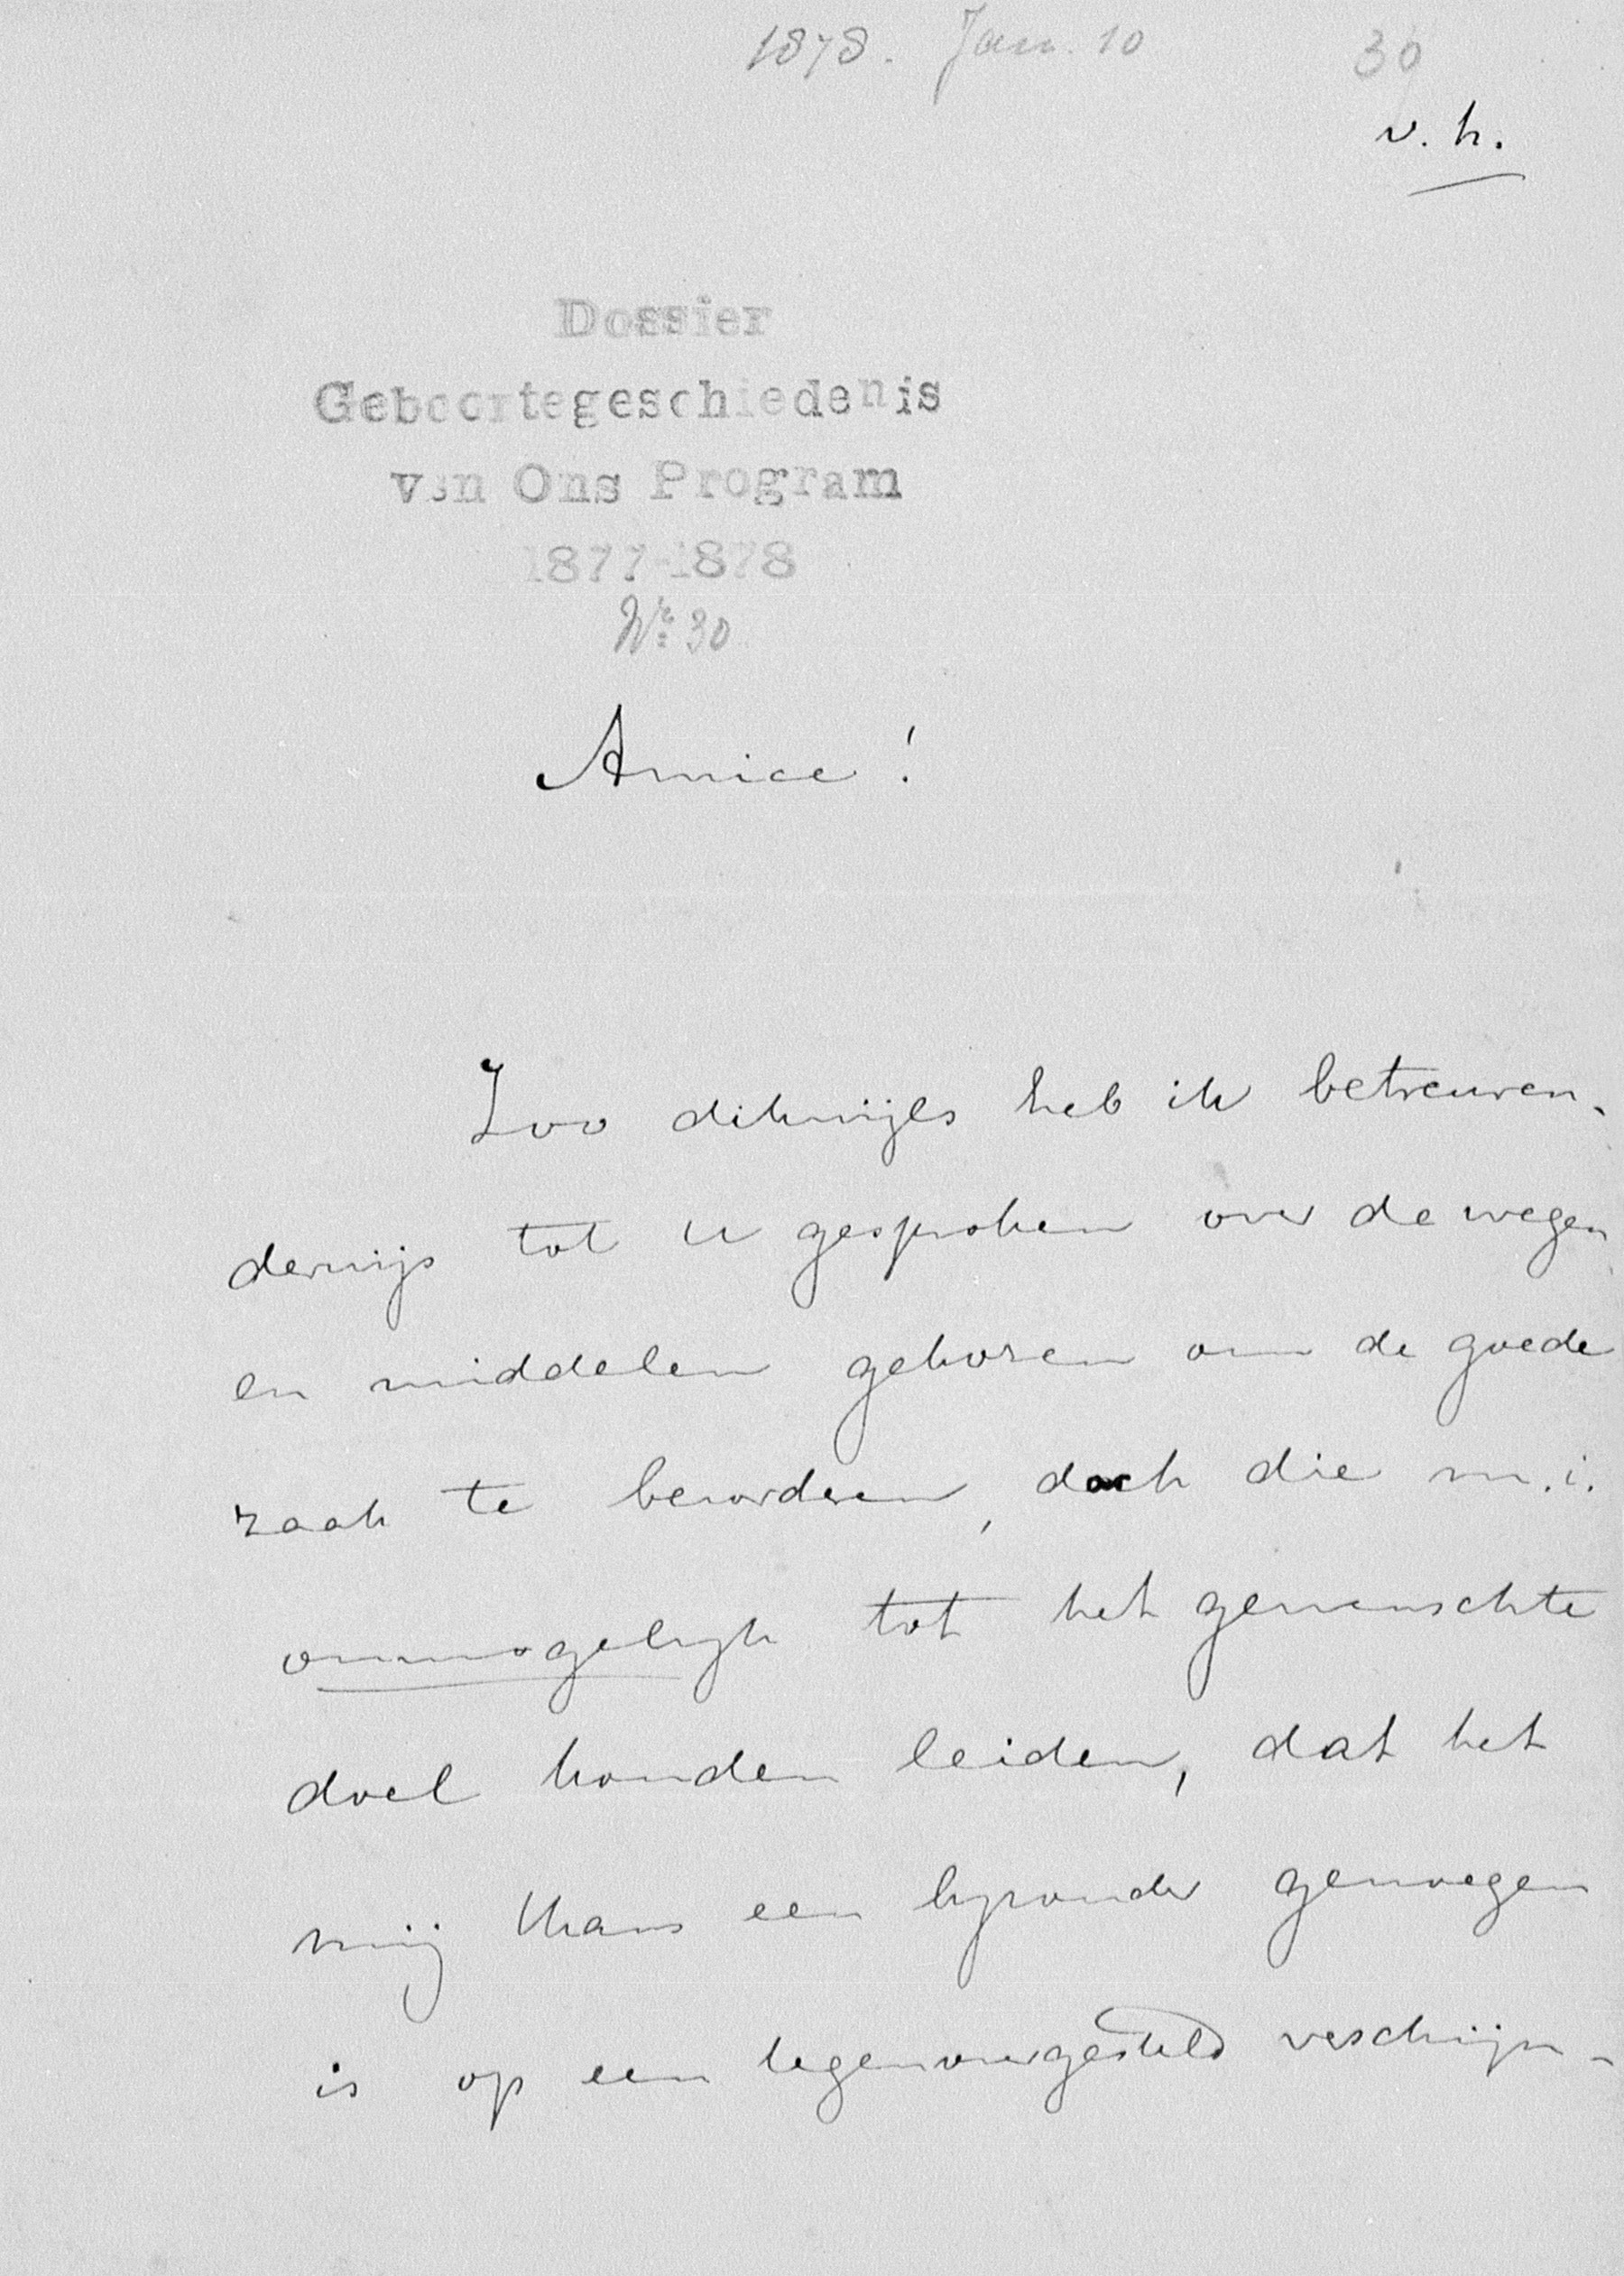 1878. Jan. 10 30
v. h.
Dossier
Geboortegeschiedenis
van Ons Program
1877-1878
No. 30
Amice!
Zoo dikwijls heb ik betreuren-
derwijs tot u gesproken over de wegen
en middelen gekozen om de goede
zaak te bevorderen, doch die m.i.
onmogelijk tot het gewenschte
doel konden leiden, dat het
mij thans een byzonder genoegen
is op een tegenovergesteld verschijn-